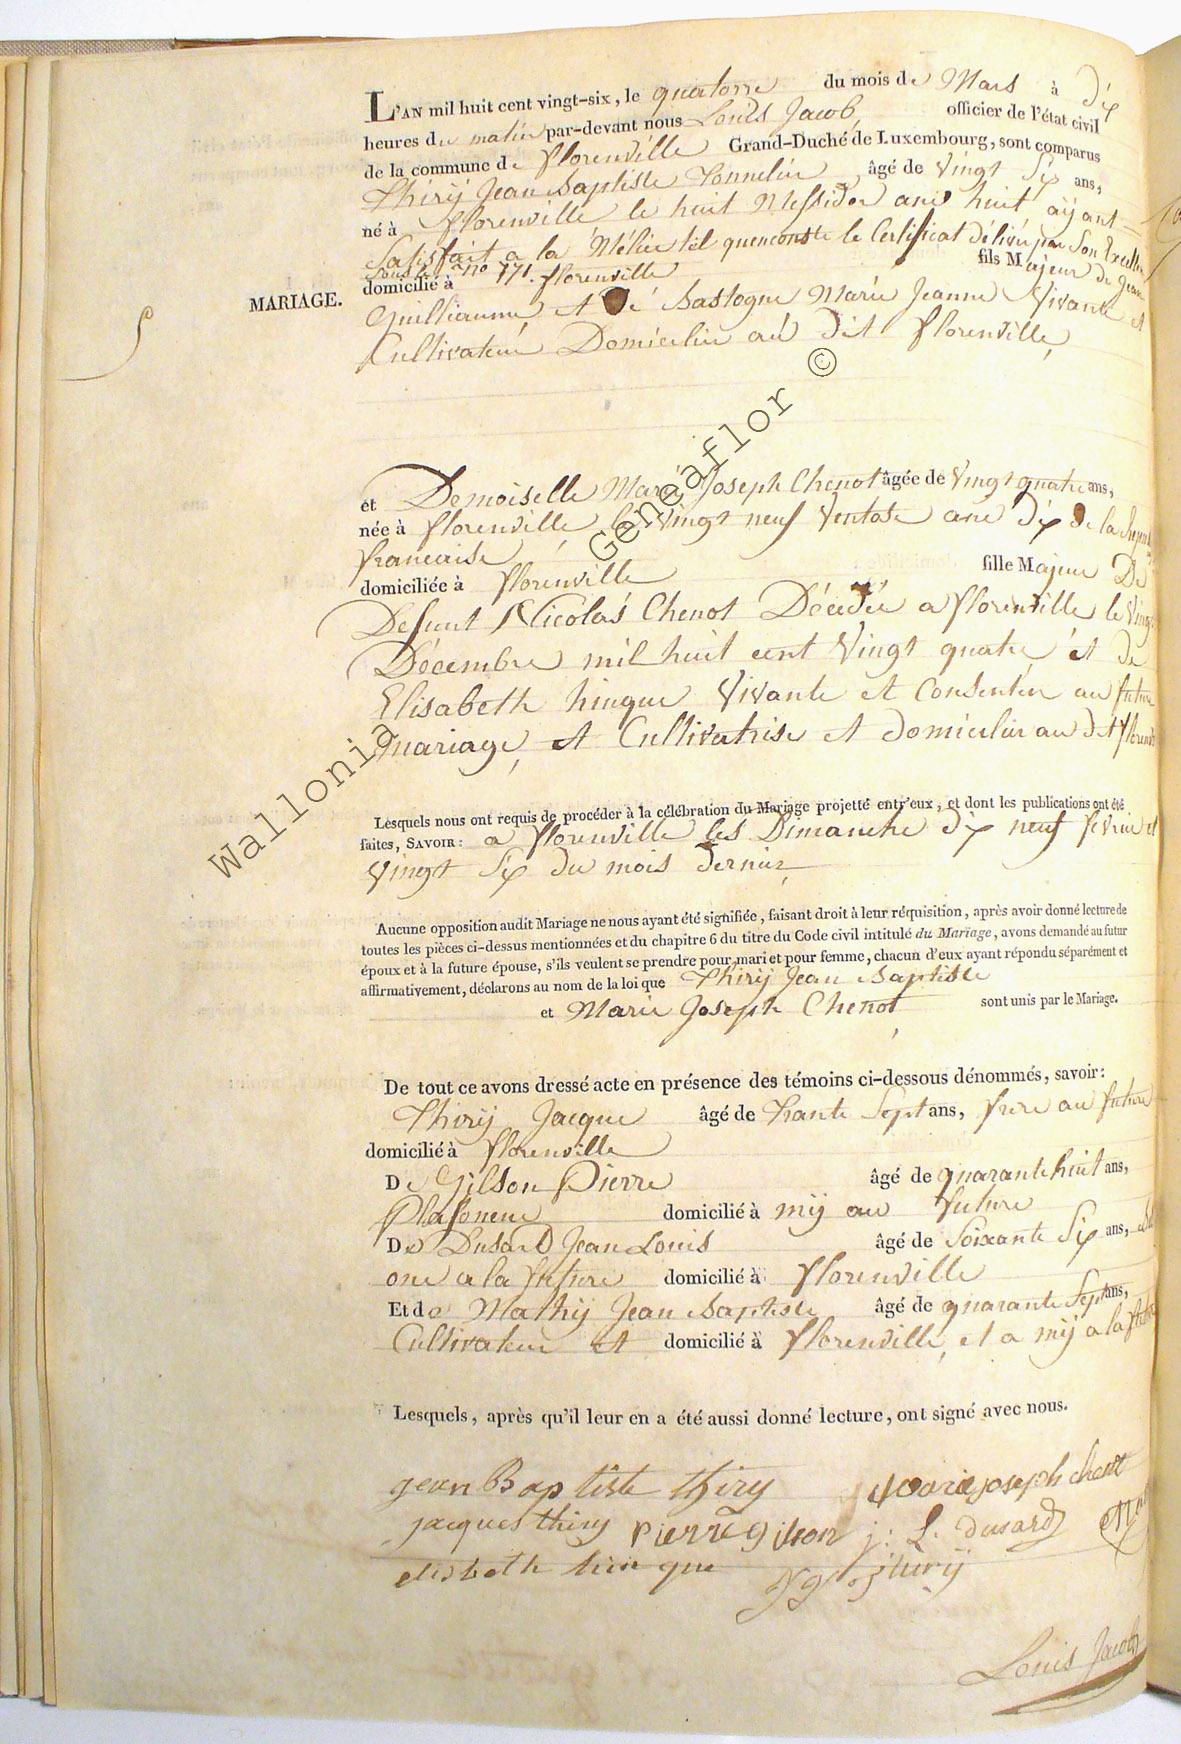 L'AN mil huit cent vingt-six, le quatorze du mois de Mars à dix
heures du matin par-devant nous Louis Jacob, officier de l'état civil
de la commune de florenville Grand-Duché de Luxembourg, sont comparus
Thirÿ Jean Baptiste Tonnelier âgé de vingt Six ans,
né à florenville le huit Messidor ane huit aÿant
Satisfait a la Milice tel que conste le Certificat délivré par Son Excellen
Sous le no 771.
domicilié à florenville fils Majeur de Jean
Guilliaume et de Bastogne Marie Jeanne Vivante et
Cultivateur Domicilier au dit florenville,
MARIAGE.
et Demoiselle Marie Joseph Chenot âgée de Vingt quatre ans,
née à florenville le Vingt neuf Ventose ane dix de la Repub
francaise
domiciliée à florenville fille Majeure De
Defunt Nicolas Chenot Décédée a florenville le Vingt
Décembre mil huit cent Vingt quatre, et de
Elisabeth hinque Vivante et Consenten au future
mariage, et Cultivatrise et domicilier au dit florenv
Lesquels nous ont requis de procéder à la célébration du Mariage projetté entr'eux, et dont les publications ont été
faites, SAVOIR: a florenville les Dimanche dix neuf fevrier et
Vingt Six du mois dernier,
Aucune opposition audit Mariage ne nous ayant été signifiée, faisant droit à leur réquisition, après avoir donné lecture de
toutes les pièces ci-dessus mentionnées et du chapitre 6 du titre du Code civil intitulé du Mariage, avons demandé au futur
époux et à la future épouse, s'ils veulent se prendre pour mari et pour femme, chacun d'eux ayant répondu séparément et
affirmativement, déclarons au nom de la loi que Thirÿ Jean Baptiste
et Marie Joseph Chenot, sont unis par le Mariage.
De tout ce avons dressé acte en présence des témoins ci-dessous dénommés, savoir:
Thirÿ Jacque âgé de Trante Sept ans, frere au future
domicilié à florenville
De Gilson Pierre âgé de quarante huit ans,
Plafoneur domicilié à mÿ au future
De Dusard Jean Louis âgé de Soixante Six ans,
one a la future domicilié à florenville
Et de Mathÿ Jean Baptiste âgé de quarante Sept ans,
Cultivateur et domicilié à florenville, et a mÿ a la future
Lesquels, après qu'il leur en a été aussi donné lecture, ont signé avec nous.
jean Baptiste thiry Marie joseph chenot
jacques thiry pierre gilson j: L. dusard
elisbeth hinque
Louis Jacob
Wallonia Geneaflor ©